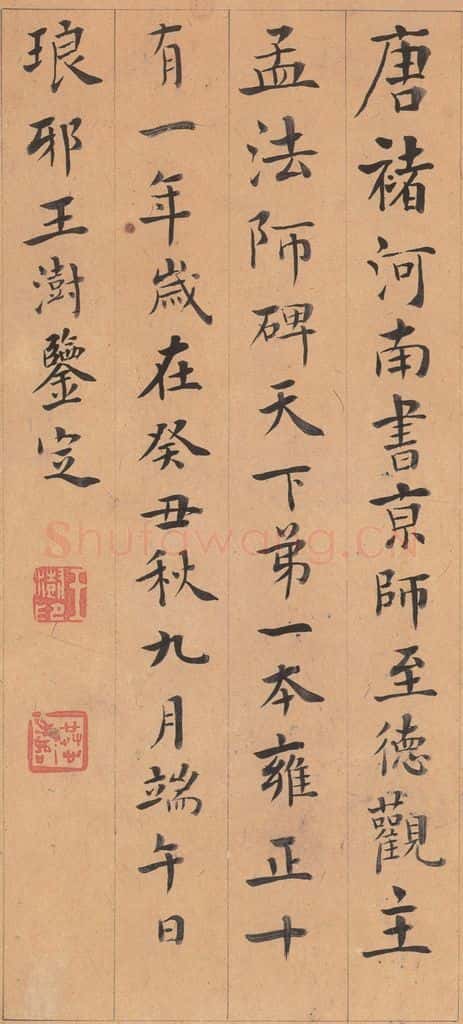 唐褚河南書京師至德觀主
孟法師碑天下弟一本雍正十
有一年歲在癸丑秋九月端午日
琅邪王澍鑒定
王澍印
Shufawang.cn